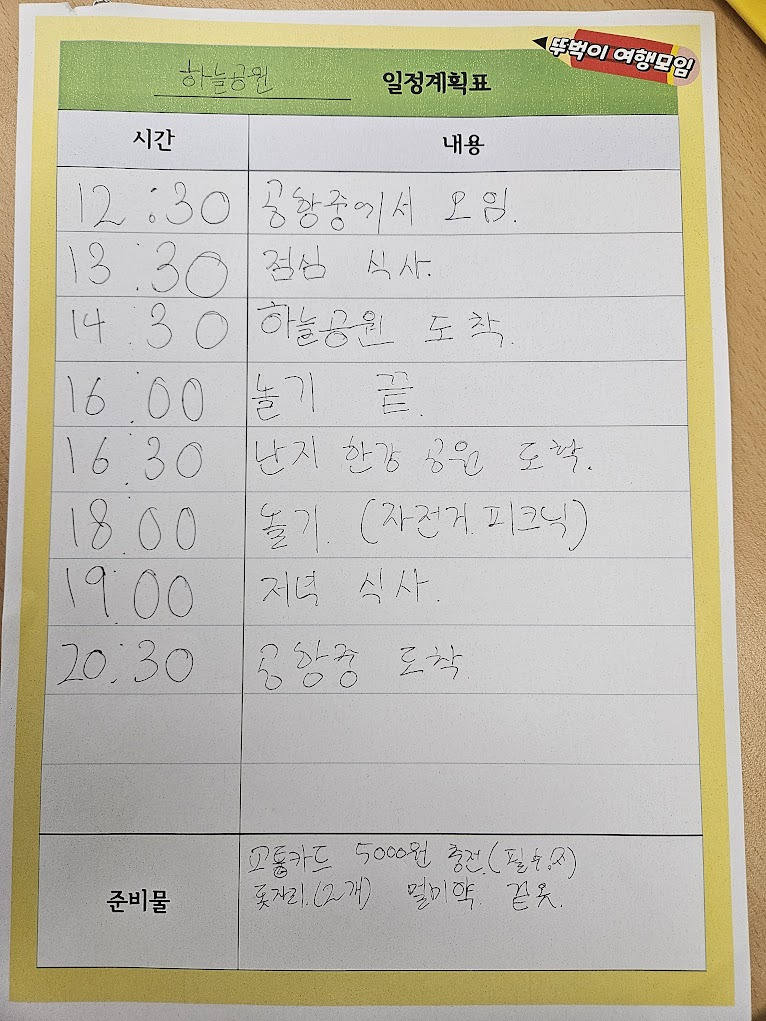 뚜벅이 여행모임
하늘공원 일정계획표
시간 내용
12:30 공항중에서 모임.
13:30 점심 식사.
14:30 하늘공원 도착.
16:00 놀기 끝.
16:30 난지 한강 공원 도착.
18:00 놀기. (자전거. 피크닉)
19:00 저녁 식사.
20:30 공항중 도착.
준비물
교통카드 5000원 충전.(필수)
돗자리.(2개) 멀미약. 겉옷.